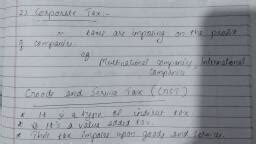 2) Corporate Tax:-
" taxes are imposing on the profit
of companies.
of Multinational companies International
Companies
Goods and Service Tax (GST)
* It is a type of indirect tax
* It's a value added tax.
* This tax impose upon goods and services.